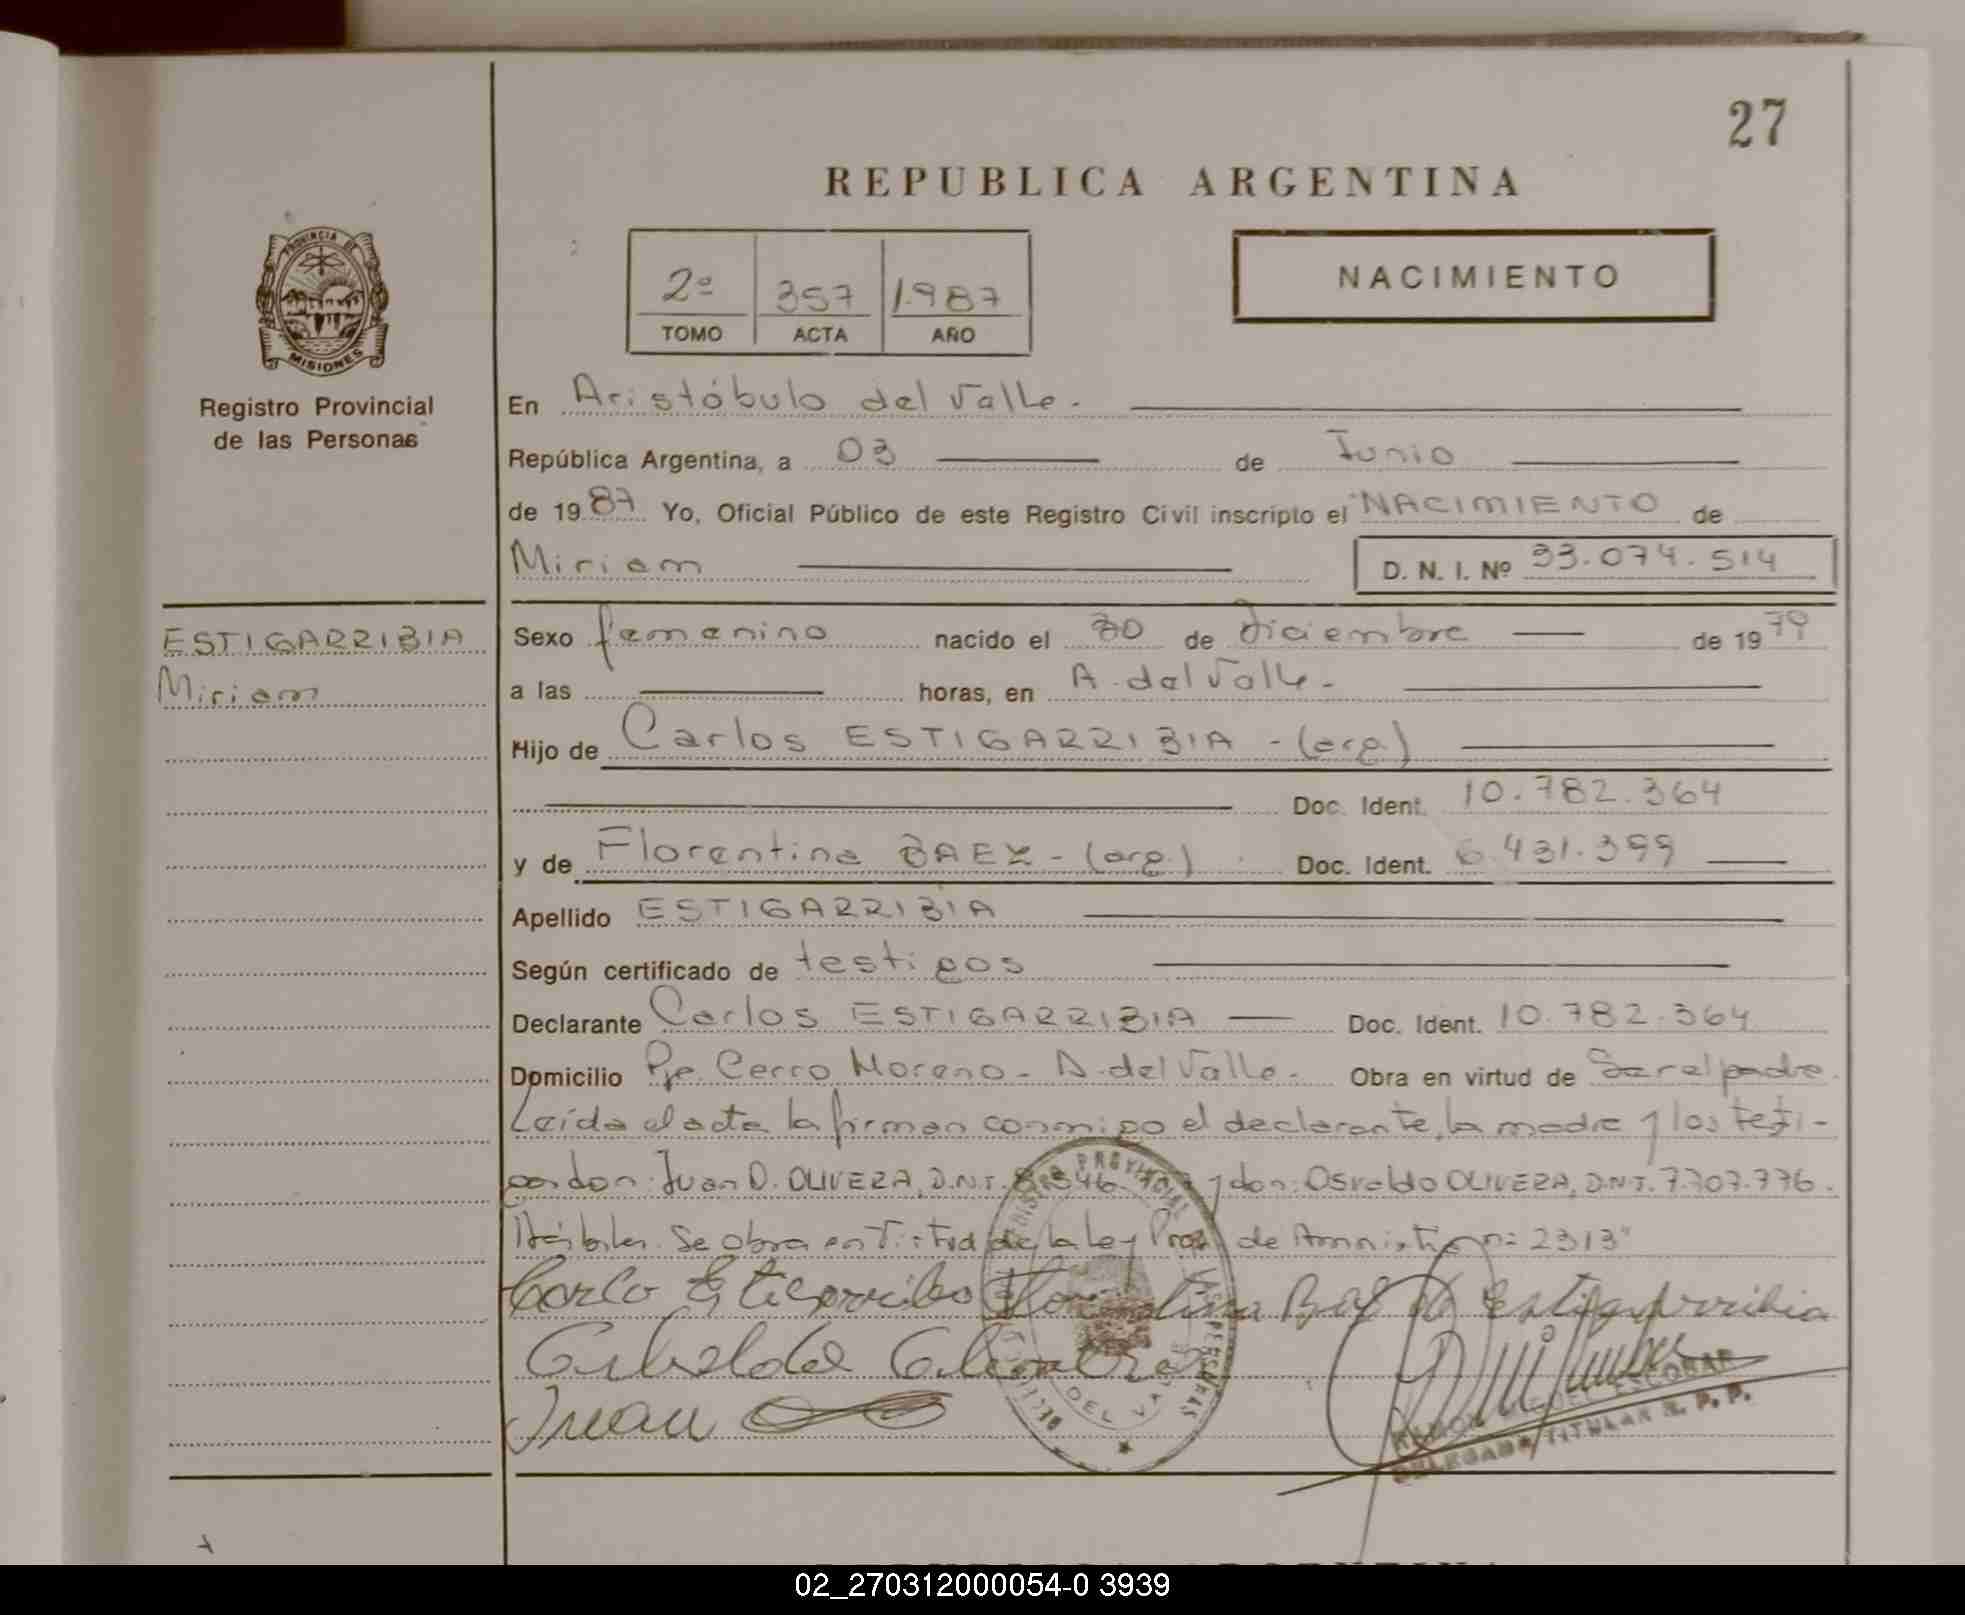 27
REPUBLICA ARGENTINA
PROVINCIA DE
MISIONES
Registro Provincial
de las Personas
2º 357 1.987
TOMO ACTA AÑO
NACIMIENTO
En Aristóbulo del Valle.
República Argentina, a 03 de Junio
de 1987 Yo, Oficial Público de este Registro Civil inscripto el NACIMIENTO de
Miriam D. N. I. Nº 33.074.514
ESTIGARRIBIA
Miriam
Sexo femenino nacido el 30 de diciembre de 1979
a las horas, en A. del Valle.
Hijo de Carlos ESTIGARRIBIA - (arg.)
Doc. Ident. 10.782.364
y de Florentina BAEZ - (arg.) Doc. Ident. 6.431.399
Apellido ESTIGARRIBIA
Según certificado de testigos
Declarante Carlos ESTIGARRIBIA Doc. Ident. 10.782.364
Domicilio Pje. Cerro Moreno - A. del Valle. Obra en virtud de Ser el padre.
Leída el acta la firman conmigo el declarante, la madre y los testi-
gos don: Juan D. OLIVERA, D.N.I. y don: Osvaldo OLIVERA, D.N.I. 7.707.776.
Hábiles. Se obra en Virtud de la Ley Prov. de Amnistía nº 2313"
Florentina de Estigarribia
Juan
DEL VALLE
RAMON MIGUEL ESCOBAR
DELEGADO TITULAR R. P. P.
02_270312000054-0 3939